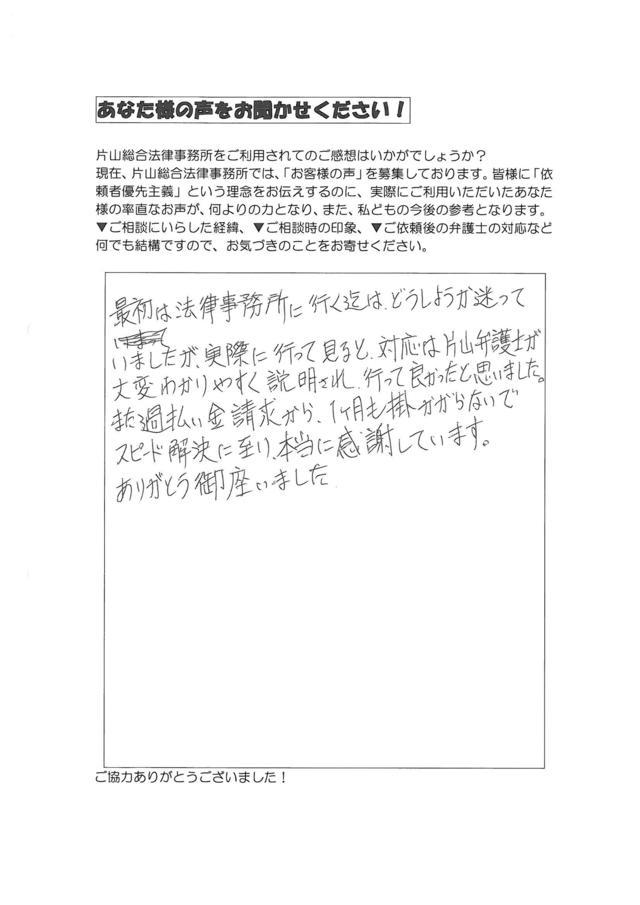 あなた様の声をお聞かせください！
片山総合法律事務所をご利用されてのご感想はいかがでしょうか？
現在、片山総合法律事務所では、「お客様の声」を募集しております。皆様に「依
頼者優先主義」という理念をお伝えするのに、実際にご利用いただいたあなた
様の率直なお声が、何よりの力となり、また、私どもの今後の参考となります。
▼ご相談にいらした経緯、▼ご相談時の印象、▼ご依頼後の弁護士の対応など
何でも結構ですので、お気づきのことをお寄せください。
最初は法律事務所に行く迄は、どうしようか迷って
いましたが、実際に行って見ると、対応は片山弁護士が
大変わかりやすく説明され、行って良かったと思いました。
また過払い金請求から、1ヶ月も掛かからないで
スピード解決に至り、本当に感謝しています。
ありがとう御座いました
ご協力ありがとうございました！